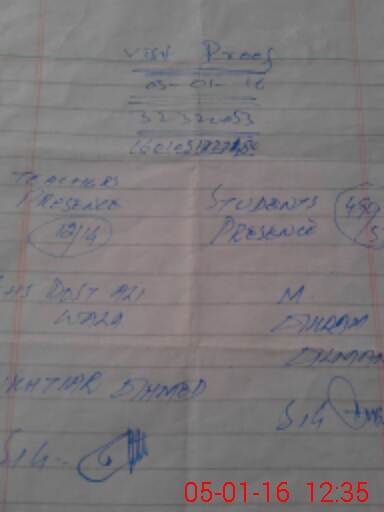 Visit Proof
05-01-16
32320053
TEACHERS
PRESENCE
12/14
STUDENTS
PRESENCE
490
GHS DOST ALI
WALA
M.
IKHTIAR AHMED
SIG
SIG..
05-01-16 12:35